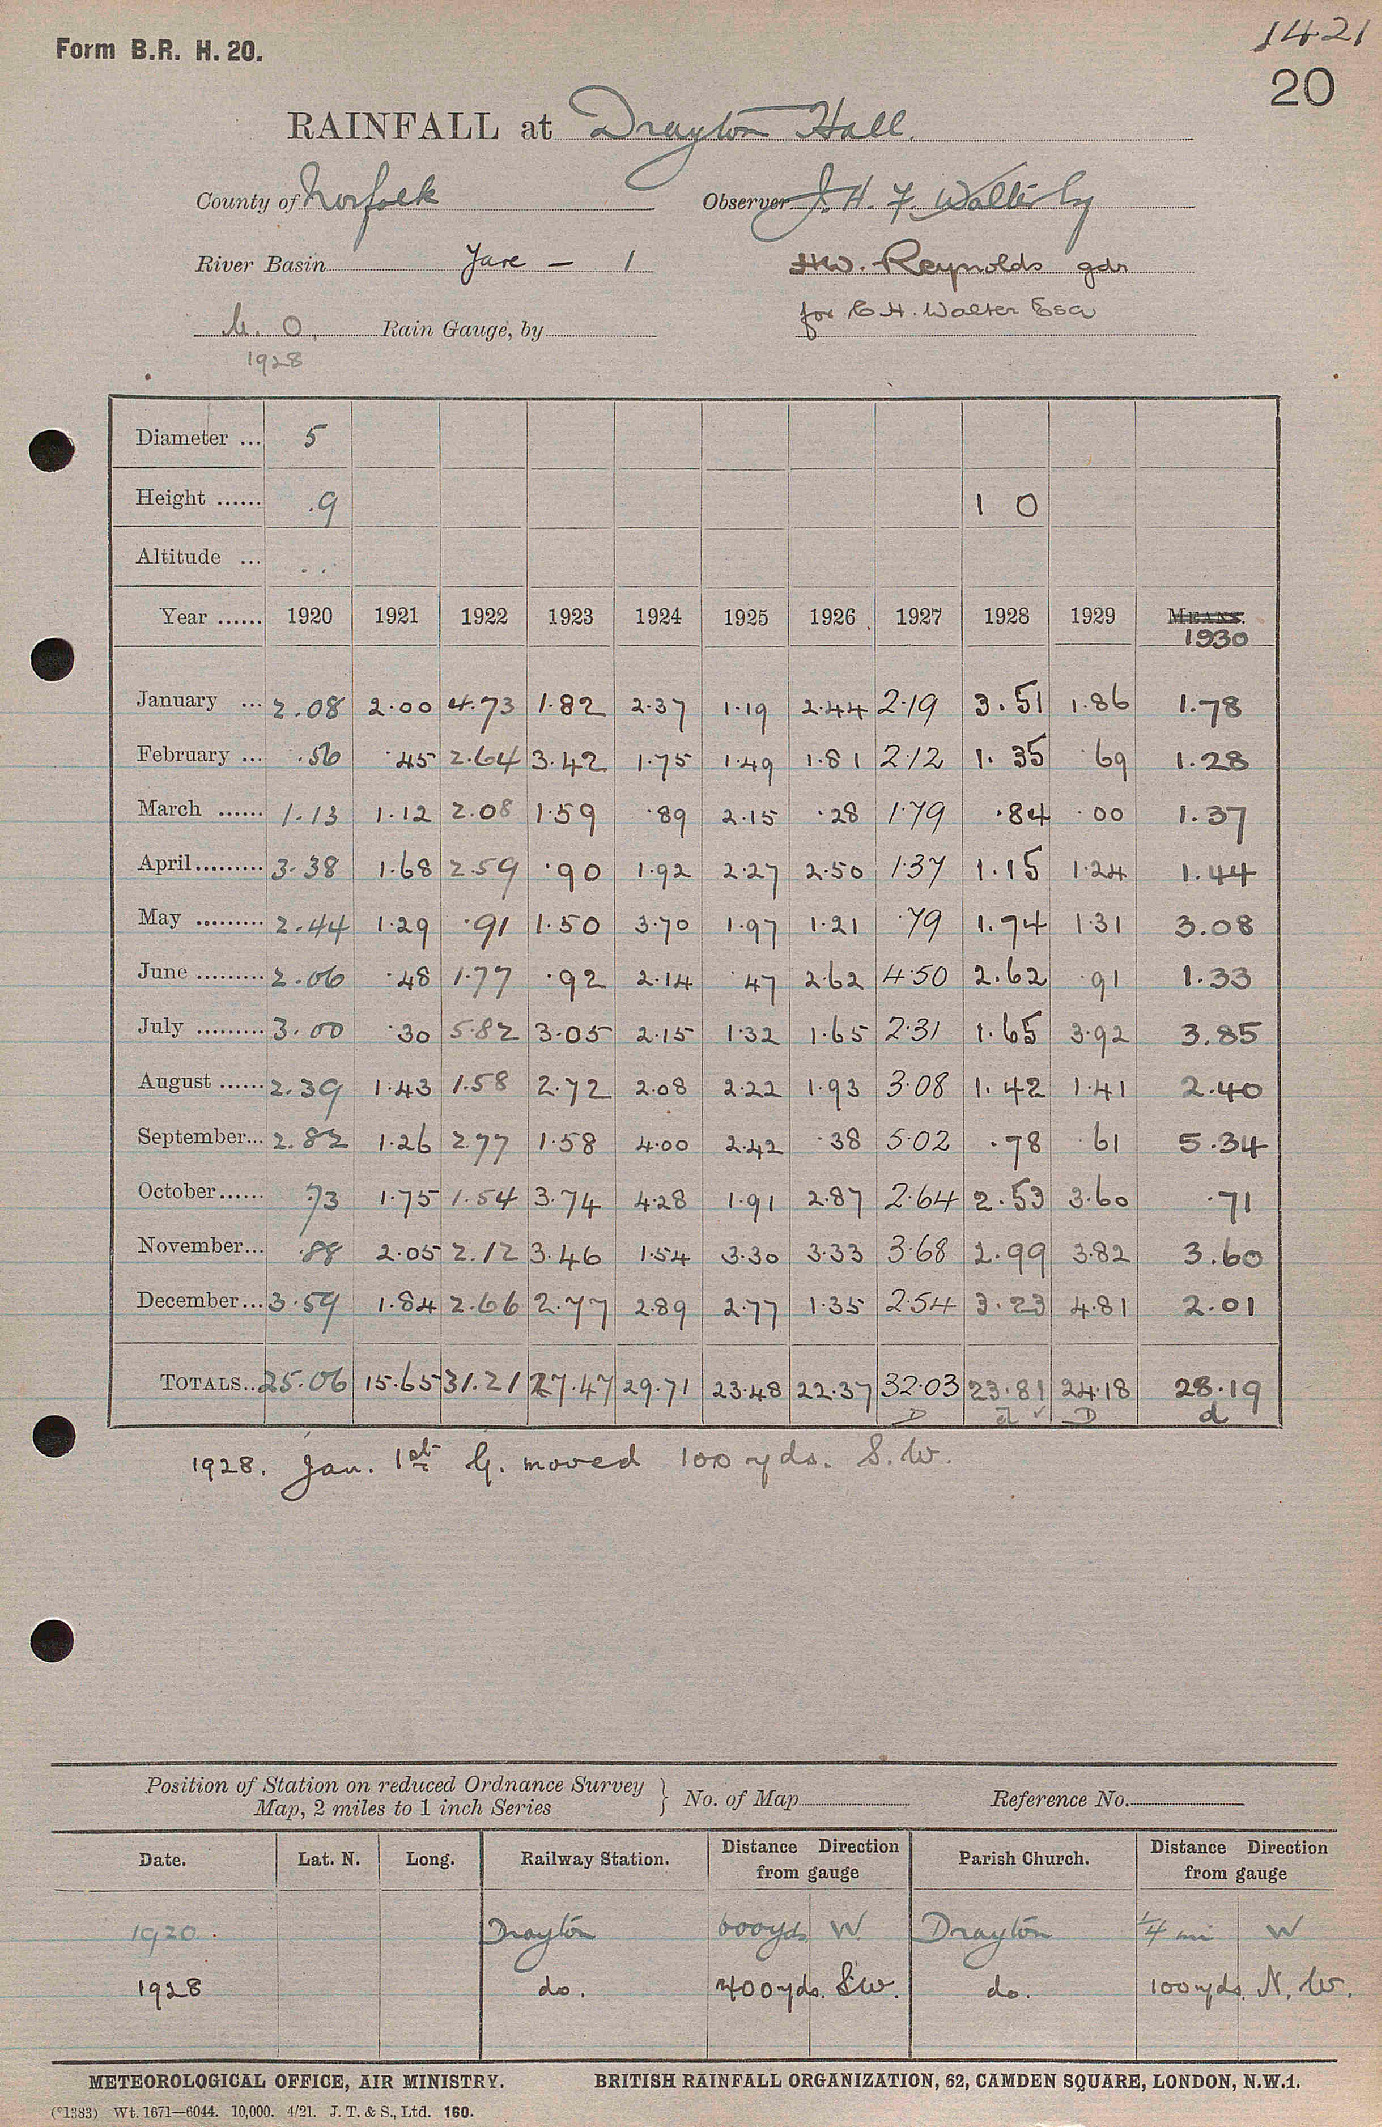 1421
Form B.R. H. 20.
20
RAINFALL at Drayton Hall.
County of Norfolk Observer J. H. F. Walter Esq
River Basin Yare — 1 HW. Reynolds gdr
M. O. Rain Gauge, by for C. H. Walter Esq
1928
Diameter ... 5
Height ...... .9 1 0
Altitude ... . .
Year ...... 1920 1921 1922 1923 1924 1925 1926 1927 1928 1929 MEANS.
1930
January ... 2.08 2.00 4.73 1.82 2.37 1.19 2.44 2.19 3.51 1.86 1.78
February ... .56 .45 2.64 3.42 1.75 1.49 1.81 2.12 1.35 .69 1.28
March ...... 1.13 1.12 2.08 1.59 .89 2.15 .28 1.79 .84 .00 1.37
April ......... 3.38 1.68 2.59 .90 1.92 2.27 2.50 1.37 1.15 1.24 1.44
May ......... 2.44 1.29 .91 1.50 3.70 1.97 1.21 .79 1.74 1.31 3.08
June ......... 2.06 .48 1.77 .92 2.14 .47 2.62 4.50 2.62 .91 1.33
July ......... 3.00 .30 5.82 3.05 2.15 1.32 1.65 2.31 1.65 3.92 3.85
August ...... 2.39 1.43 1.58 2.72 2.08 2.22 1.93 3.08 1.42 1.41 2.40
September... 2.82 1.26 2.77 1.58 4.00 2.42 .38 5.02 .78 .61 5.34
October...... .73 1.75 1.54 3.74 4.28 1.91 2.87 2.64 2.53 3.60 .71
November... .88 2.05 2.12 3.46 1.54 3.30 3.33 3.68 2.99 3.82 3.60
December... 3.59 1.84 2.66 2.77 2.89 2.77 1.35 2.54 3.23 4.81 2.01
TOTALS.. 25.06 15.65 31.21 27.47 29.71 23.48 22.37 32.03 23.81 24.18 28.19
D d ✓ D d
1928. Jan. 1st G. moved 100 yds. S.W.
Position of Station on reduced Ordnance Survey
Map, 2 miles to 1 inch Series } No. of Map Reference No.
Date. Lat. N. Long. Railway Station. Distance Direction from gauge Parish Church. Distance Direction from gauge
1920 Drayton 600yds W. Drayton 1/4 mi W
1928 do. 400yds. S.W. do. 100yds. N.W.
METEOROLOGICAL OFFICE, AIR MINISTRY. BRITISH RAINFALL ORGANIZATION, 62, CAMDEN SQUARE, LONDON, N.W.1.
(*1383) Wt. 1671—6044. 10,000. 4/21. J. T. & S., Ltd. 160.